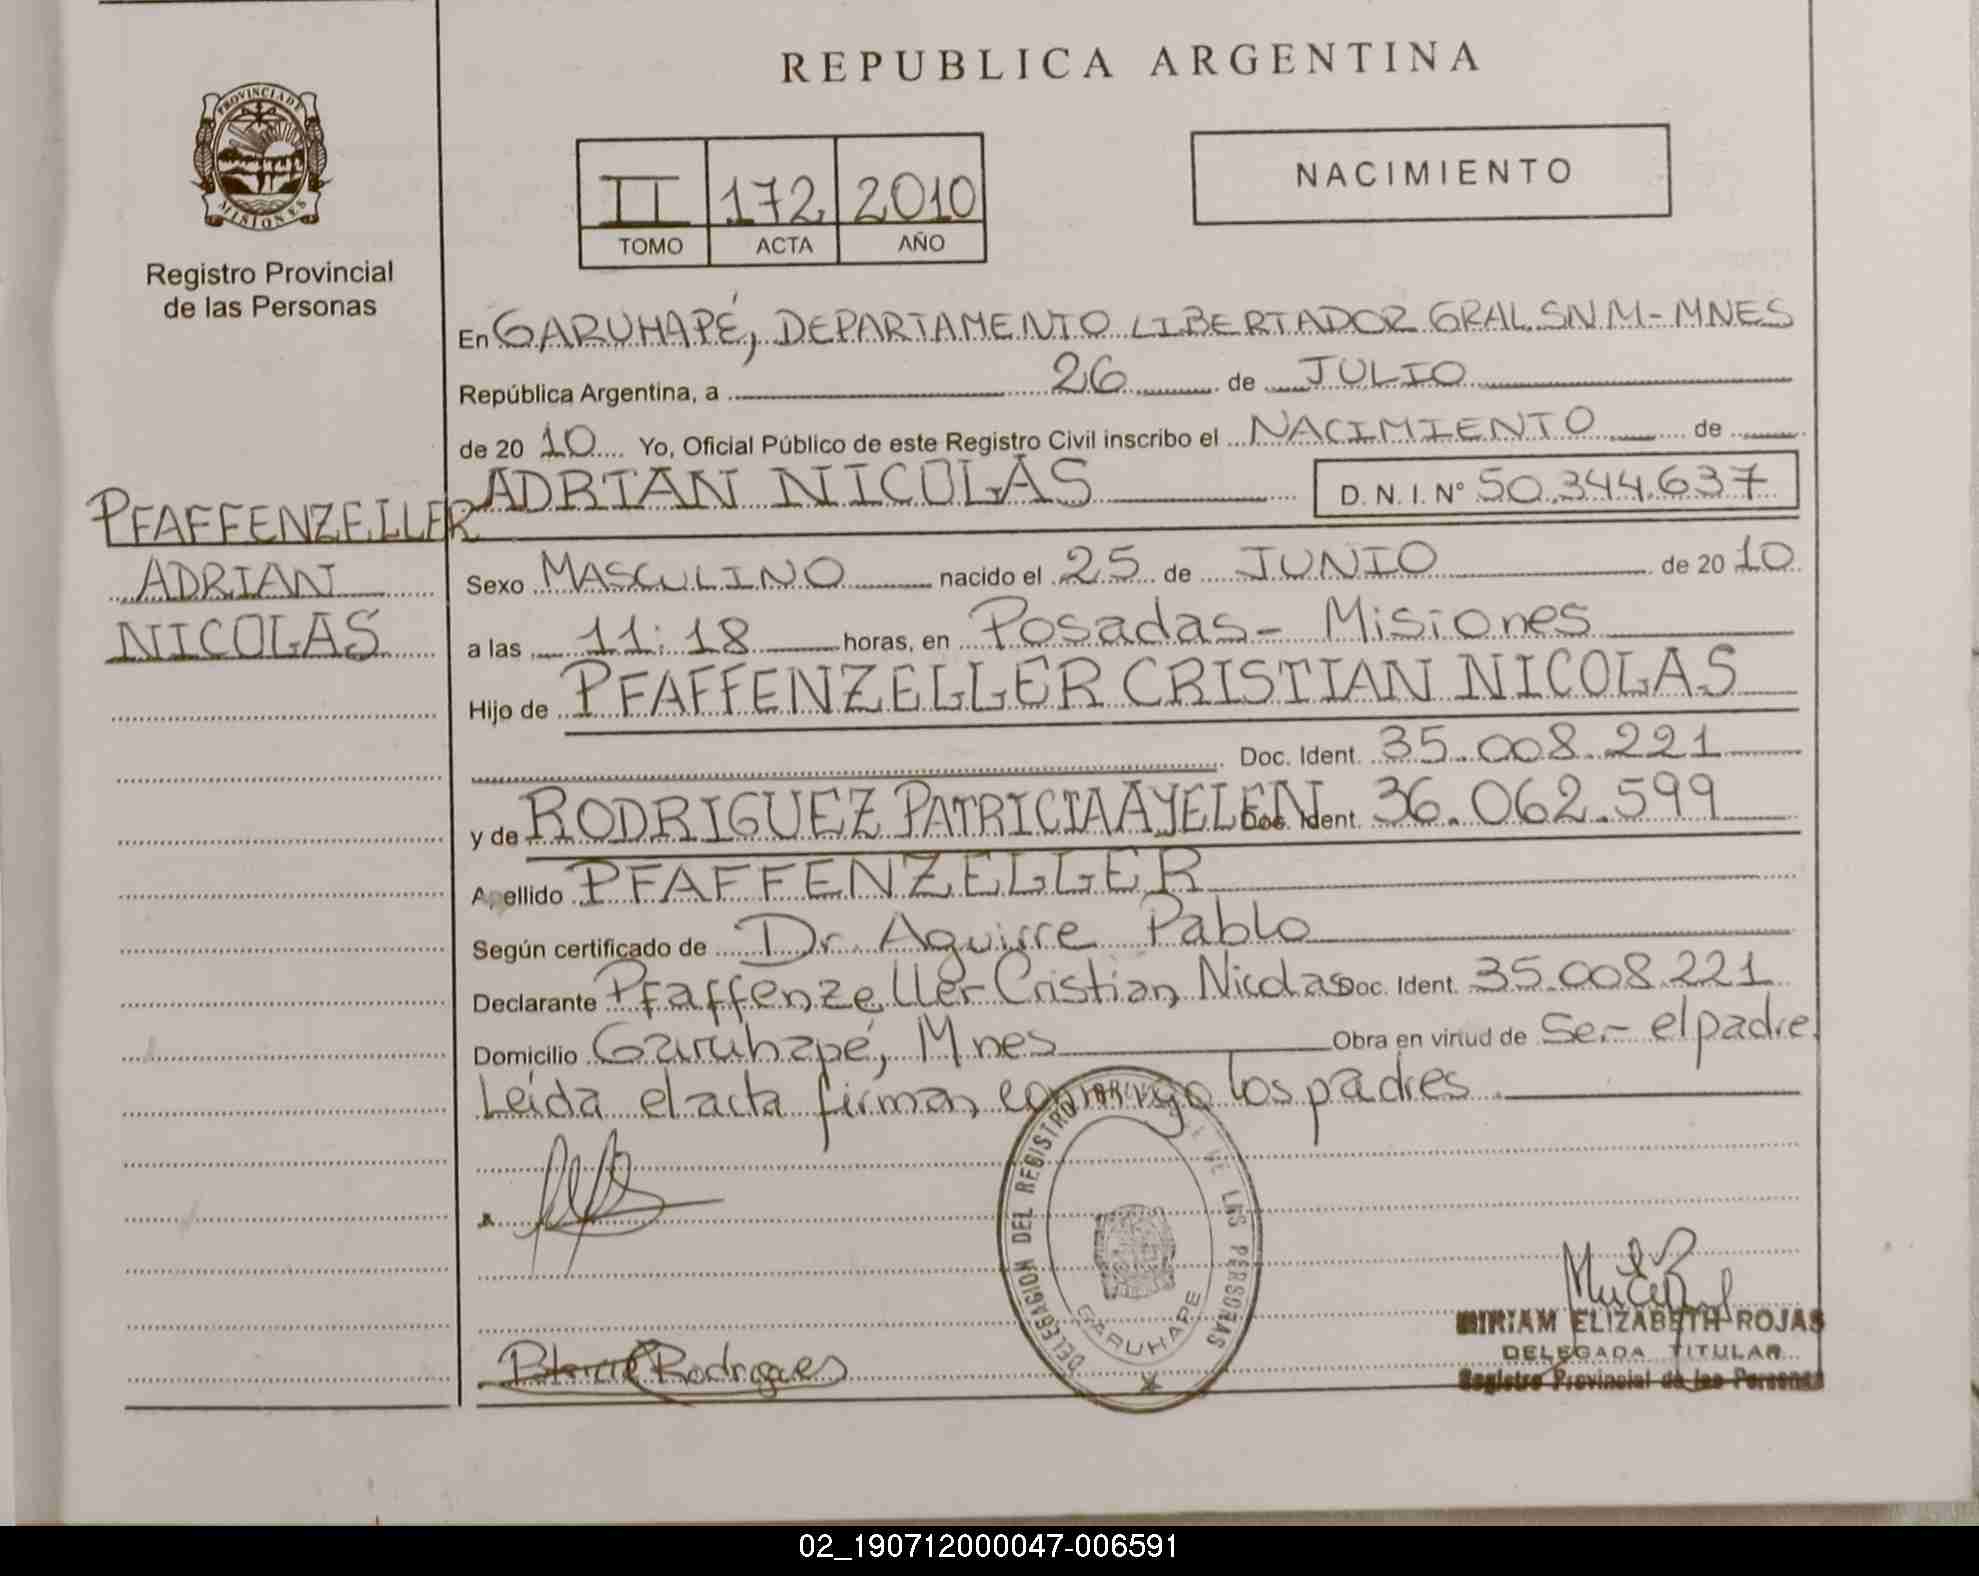 REPUBLICA ARGENTINA
PROVINCIA DE
MISIONES
Registro Provincial
de las Personas
II 172 2010
TOMO ACTA AÑO
NACIMIENTO
En GARUHAPÉ, DEPARTAMENTO LIBERTADOR GRAL SN M - MNES
República Argentina, a 26 de JULIO
de 20 10 Yo, Oficial Público de este Registro Civil inscribo el NACIMIENTO de
ADRIAN NICOLAS D. N. I. Nº 50.344.637
PFAFFENZELLER
ADRIAN
NICOLAS
Sexo MASCULINO nacido el 25 de JUNIO de 20 10
a las 11:18 horas, en Posadas - Misiones
Hijo de PFAFFENZELLER CRISTIAN NICOLAS
Doc. Ident. 35.008.221
y de RODRIGUEZ PATRICIA AYELEN Doc. Ident. 36.062.599
Apellido PFAFFENZELLER
Según certificado de Dr. Aguirre Pablo
Declarante Pfaffenzeller Cristian Nicolas Doc. Ident. 35.008.221
Domicilio Garuhapé, Mnes Obra en virtud de Ser el padre.
Leída el acta firman conmigo los padres
DELEGACION DEL REGISTRO DE LAS PERSONAS
GARUHAPE
Rodrigues
MIRIAM ELIZABETH ROJAS
DELEGADA TITULAR
Registro Provincial de las Personas
02_190712000047-006591